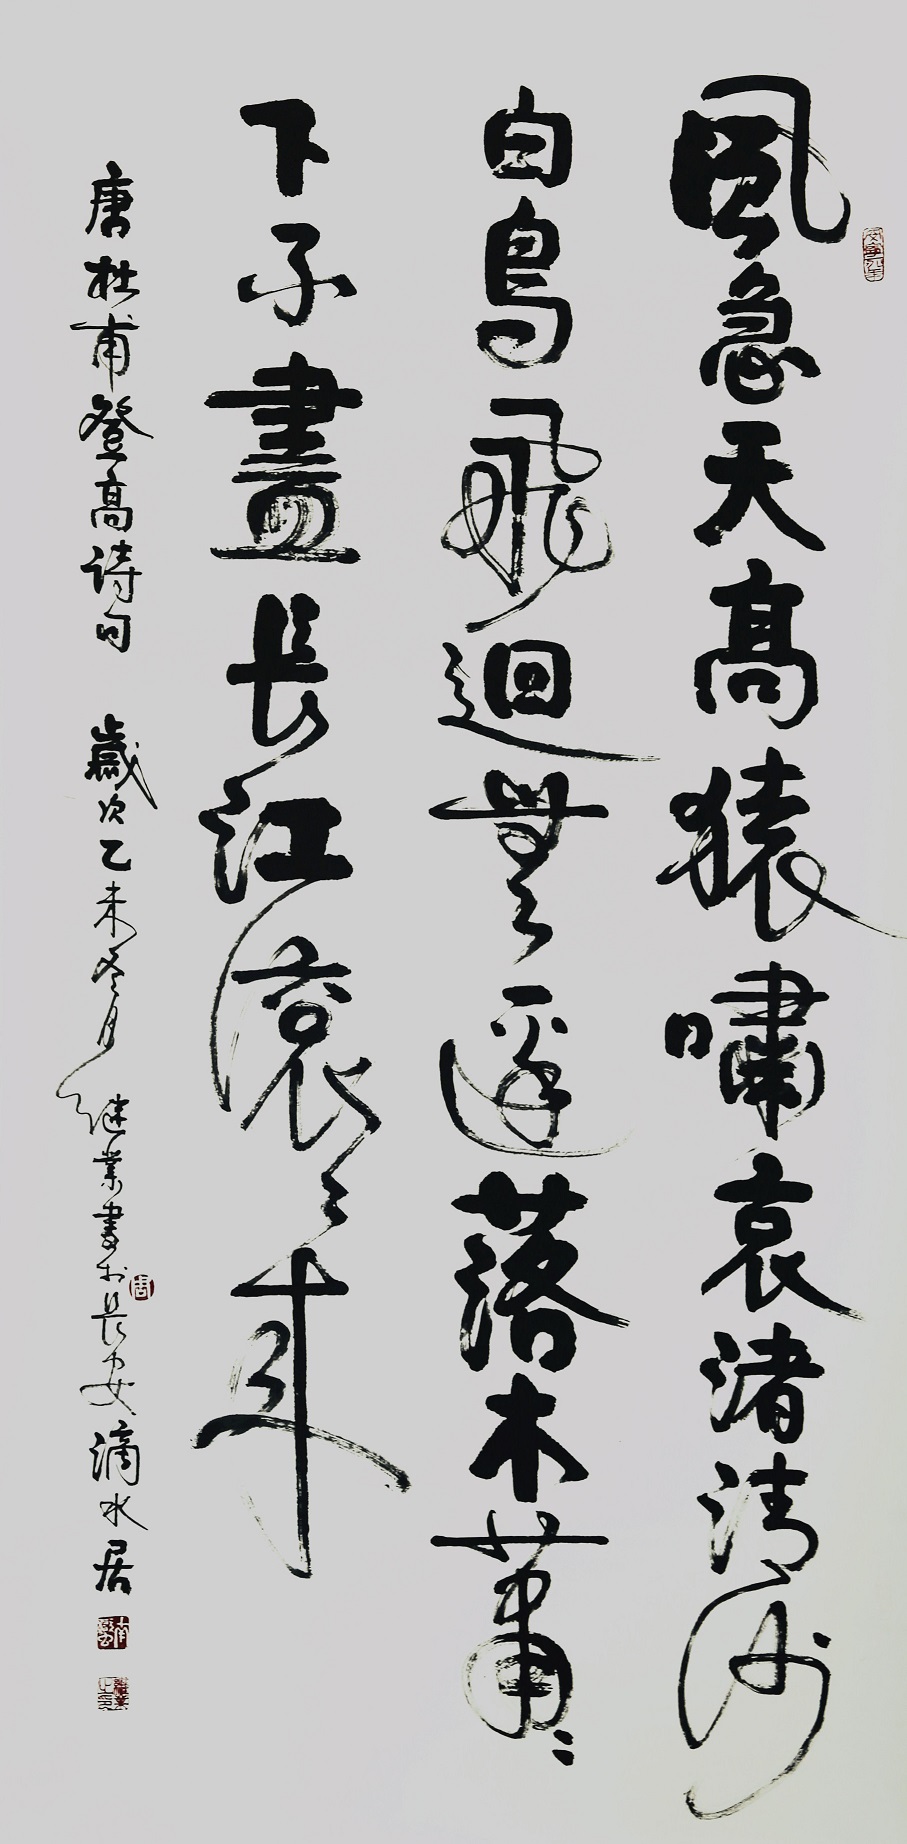 風急天高猿嘯哀渚清沙
白鳥飛迴無邊落木蕭〻
下不盡長江滾〻來
唐杜甫登高詩句 歲次乙未冬月 继業書於長安滴水居